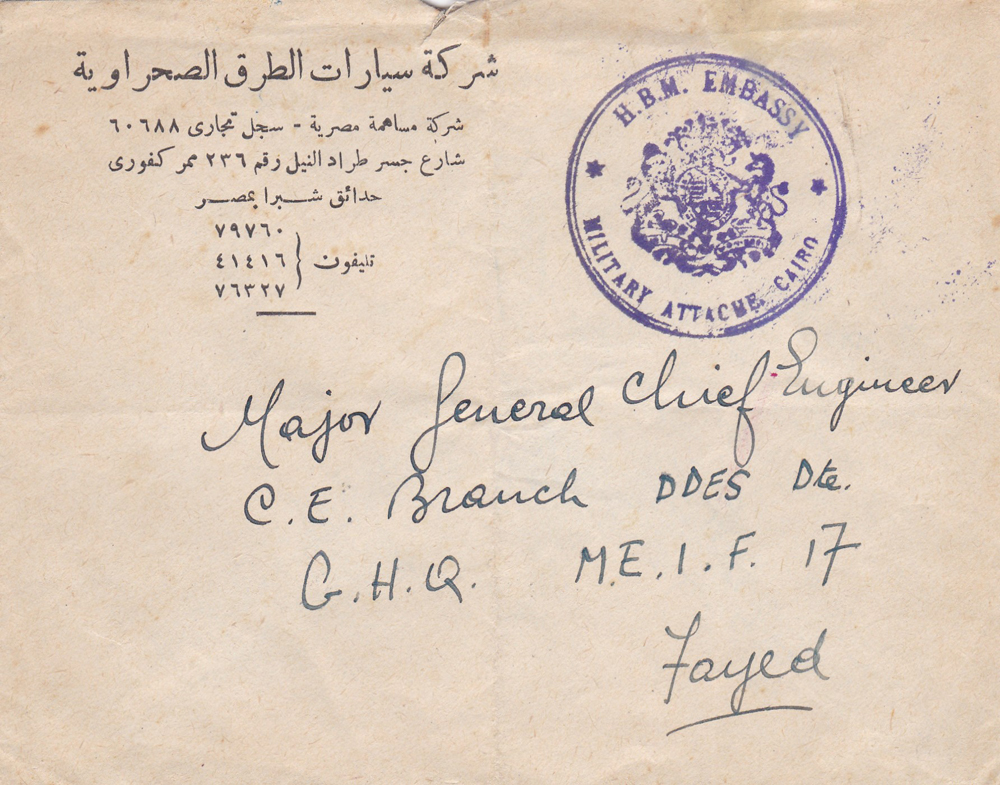 شركة سيارات الطرق الصحراوية
شركة مساهمة مصرية - سجل تجارى ٦٠٦٨٨
شارع جسر طراد النيل رقم ٢٣٦ ممر كنفورى
حدائق شبرا بمصر
تليفون
٧٩٧٦٠
٤١٤١٦
٧٦٣٢٧
H.B.M. EMBASSY
MILITARY ATTACHE, CAIRO
Major General Chief Engineer
C.E. Branch DDES Dte.
G.H.Q. M.E.I.F. 17
Fayed